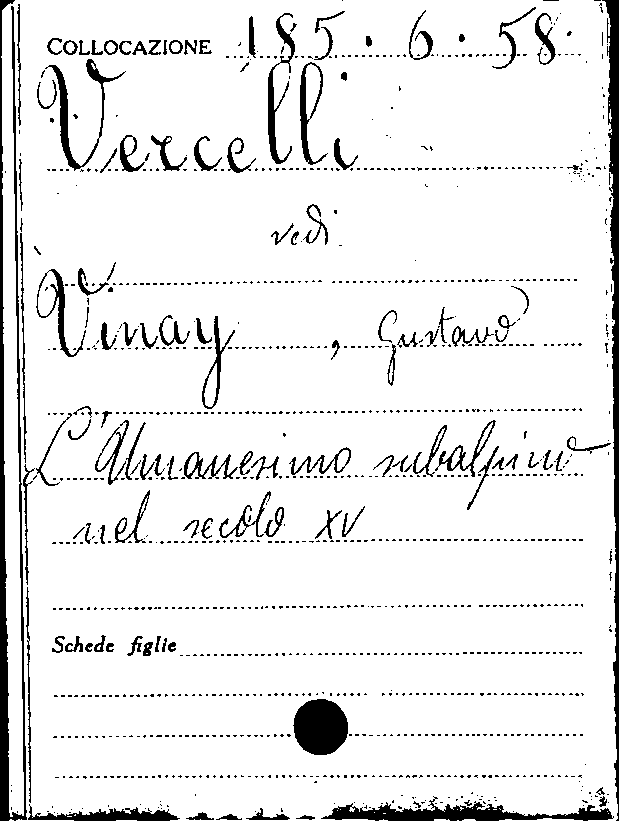 COLLOCAZIONE 185.6.58.
Vercelli
vedi
Vinay, Gustavo
L'Umanesimo subalpino
nel secolo XV
Schede figlie